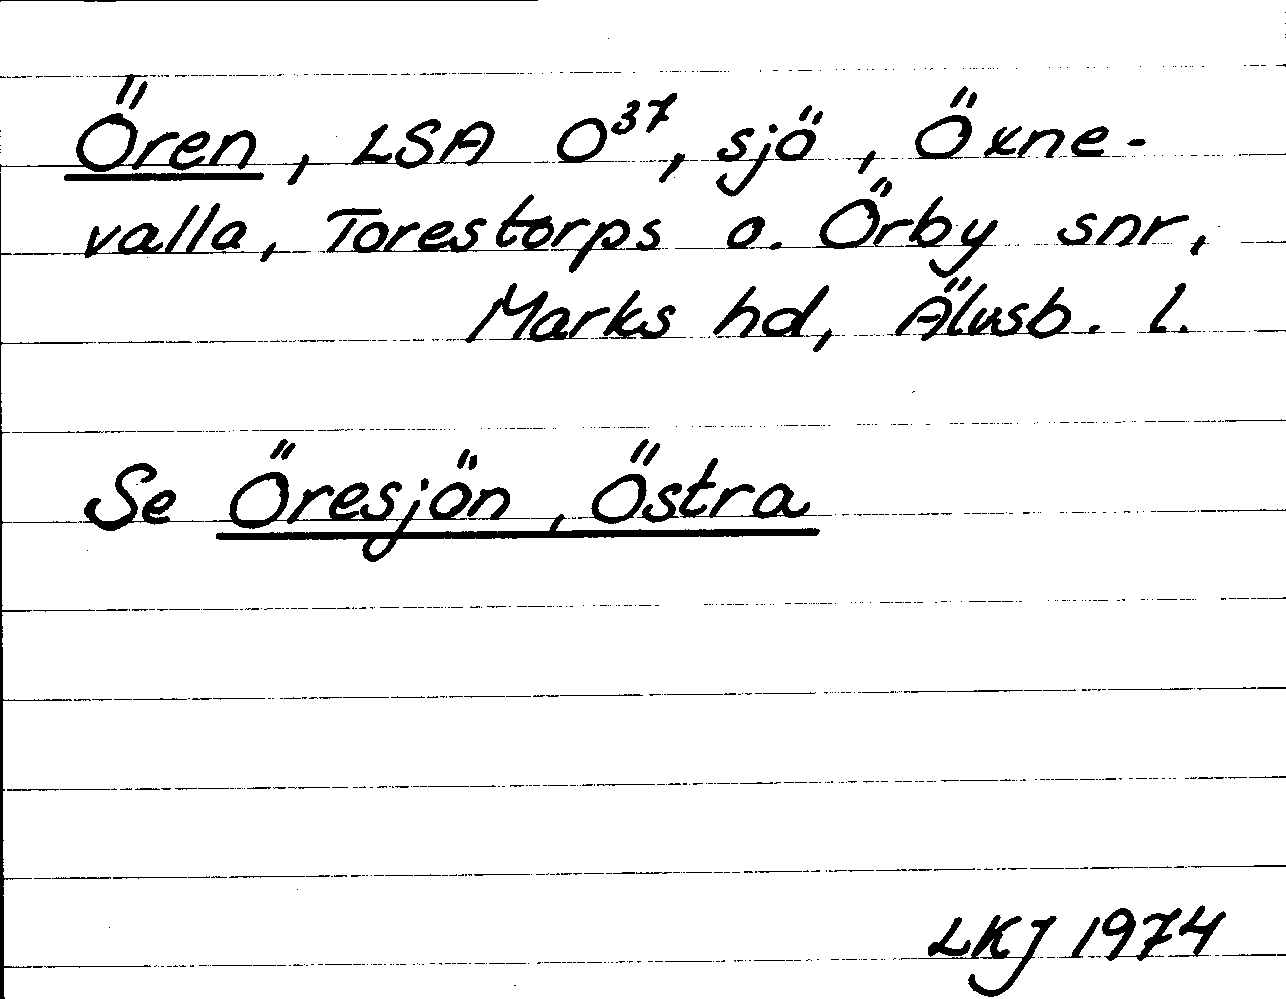 Ören, LSA O37, sjö, Öxne-
valla, Torestorps o. Örby snr,
Marks hd, Älvsb. l.
Se Öresjön, Östra
LKJ 1974